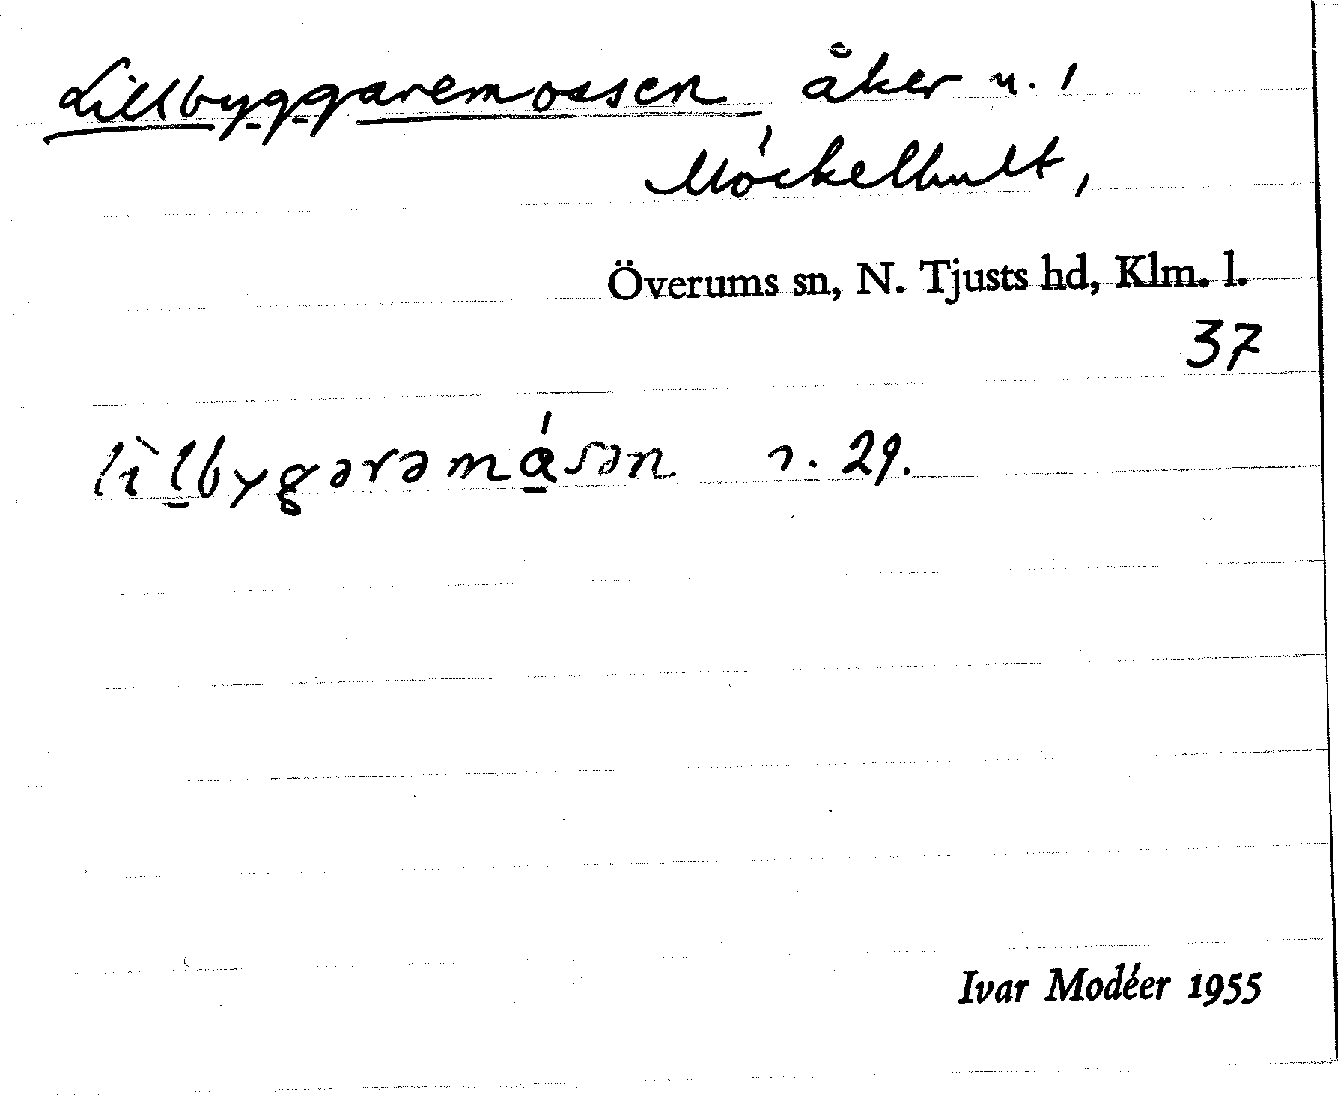 Lillbyggaremossen åker u. 1
Möckelhult,
Överums sn, N. Tjusts hd, Klm. l.
37
lìlbygərəmásən r. 29.
Ivar Modéer 1955